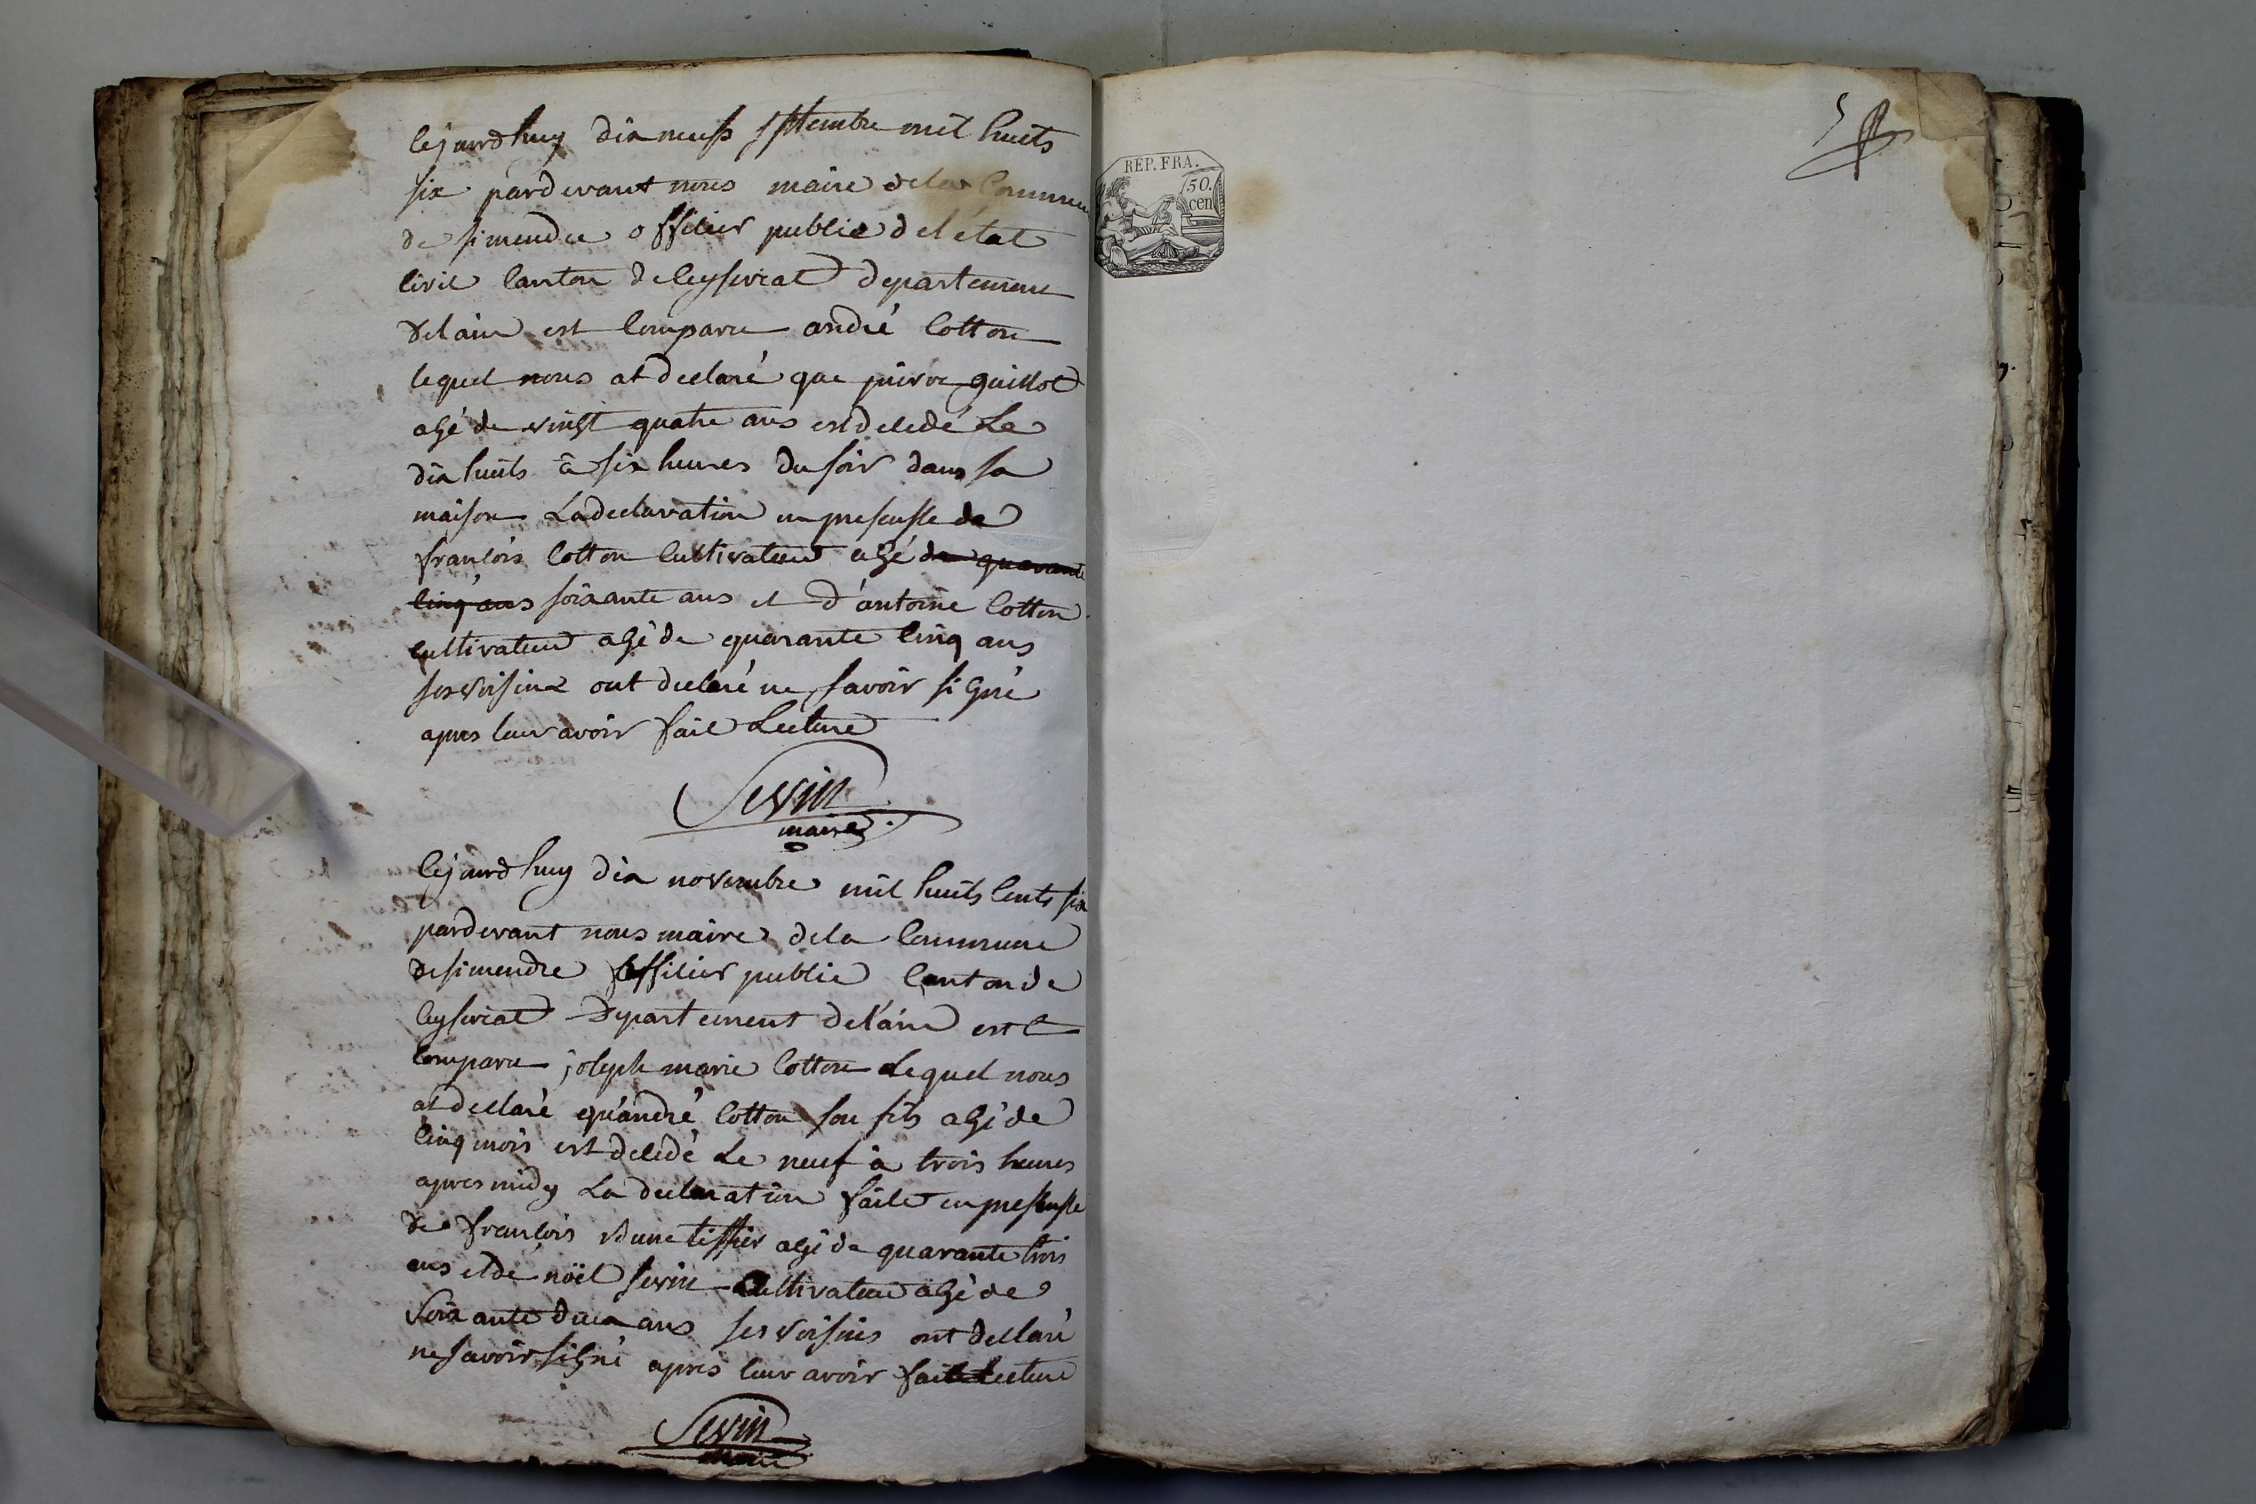 Cejourdhuy dix neufs septembre mil huits
six pardevant nous maire dela Commune
de simendre officier public del'état
Civil Canton de Ceyseriat departement
delain est Comparu andré Cotton
lequel nous at declaré que pierre guillot
agé de vingt quatre ans est decedé Le
dix huits à six heures du soir dans sa
maison La declaration en presensse de
francois Cotton Cultivateur agé de quarante
Cinq ans soixante ans et d'antoine Cotton
cultivateur agé de quarante Cinq ans
ses voisins ont declaré ne savoir signé
apres leur avoir fait Lecture
Sevin
maire
Cejourdhuy dix novembre mil huits Cents six
pardevant nous maire dela Commune
de simendre officier public Canton de
Ceyseriat Departement de l'ain est
Comparu joseph marie Cotton Lequel nous
at declaré qu'andré Cotton son fils agé de
Cinq mois est decedé Le neuf à trois heures
apres midy La declaration faite en presensse
de francois tissier agé de quarante trois
ans et de noël sevin Cultivateur agé de
soixante deux ans ses voisins ont declaré
ne savoir signé apres leur avoir fait Lecture
Sevin
maire
5
REP. FRA.
50.
cen